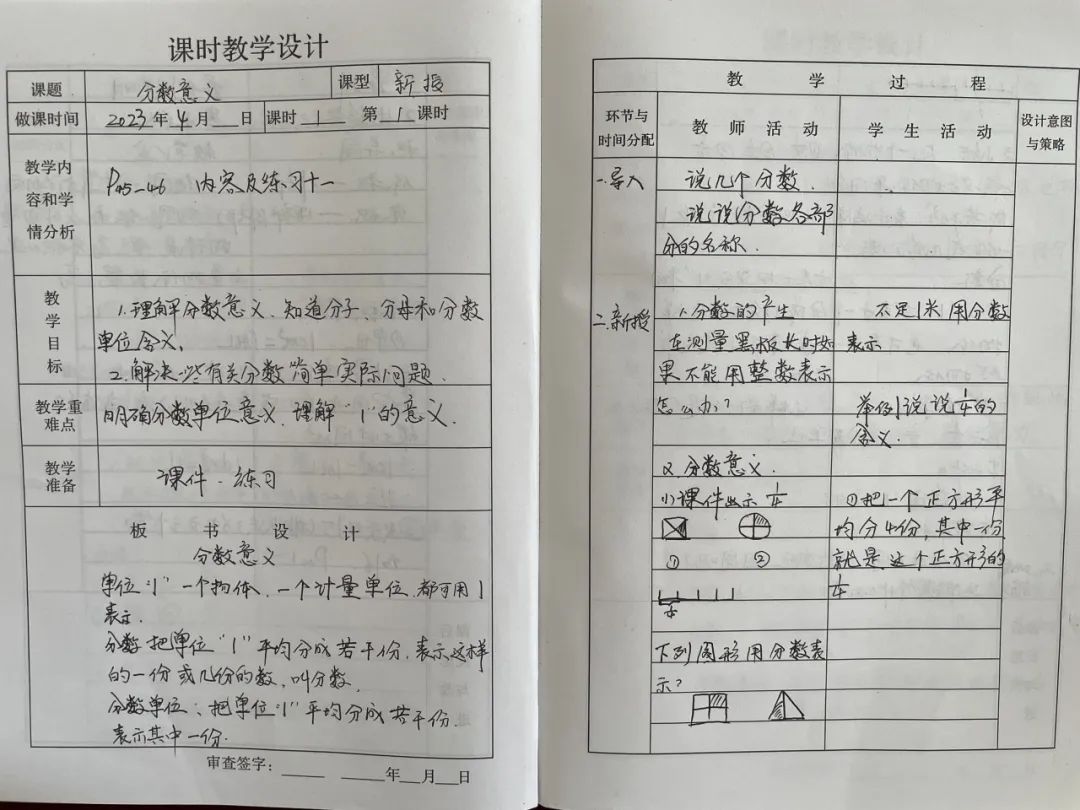 课时教学设计
课题 分数意义 课型 新授
做课时间 2023年4月___日 课时 1 第 1 课时
教学内容和学情分析
P45-46 内容及练习十一
教学目标
1.理解分数意义、知道分子、分母和分数
单位含义、
2.解决一些有关分数简单实际问题.
教学重难点
明确分数单位意义、理解"1"的意义.
教学准备
课件.练习
板书设计
分数意义
单位"1" 一个物体、一个计量单位、都可用1
表示.
分数 把单位"1"平均分成若干份、表示这样
的一份或几份的数、叫分数.
分数单位:把单位"1"平均分成若干份.
表示其中一份.
审查签字:____ ____年___月___日
教学过程
环节与时间分配 教师活动 学生活动 设计意图与策略
一.导入
说几个分数.
说说分数各部
分的名称.
二.新授
1.分数的产生
在测量黑板长时如
果不能用整数表示
怎么办?
2.分数意义.
(1)课件出示 1/4
① ②
1/4
下列图形用分数表
示?
不足1米用分数
表示
举例说说1/4的
含义.
①把一个正方形平
均分4份,其中一份
就是这个正方形的
1/4